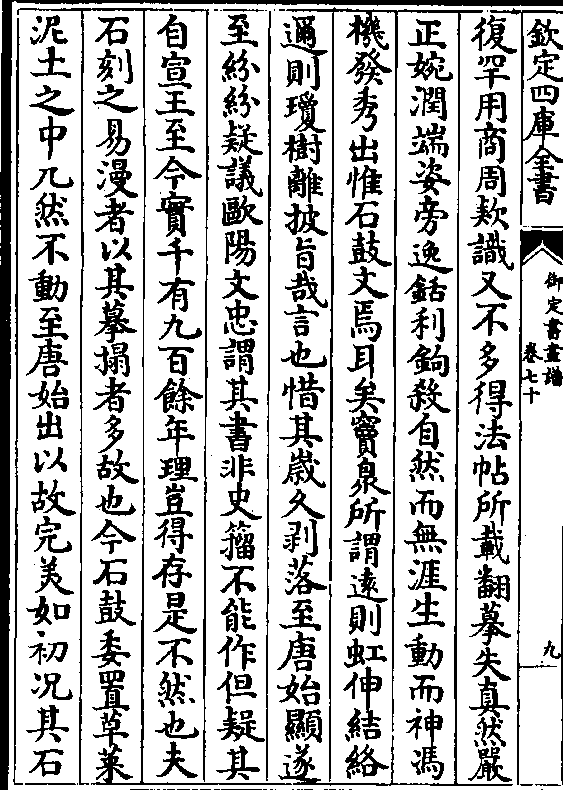 欽定四庫全書
御定書畫譜
卷七十
九
復罕用商周欵識又不多得法帖所載翻摹失真然嚴
正婉潤端姿旁逸銛利鉤殺自然而無涯生動而神馮
機發秀出惟石鼓文焉耳矣竇泉所謂遠則虹伸結絡
邇則瓊樹離披旨哉言也惜其歲久剥落至唐始顯遂
至紛紛疑議歐陽文忠謂其書非史籀不能作但疑其
自宣王至今實千有九百餘年理豈得存是不然也夫
石刻之易漫者以其摹搨者多故也今石鼓委置草莱
泥土之中兀然不動至唐始出以故完美如初况其石